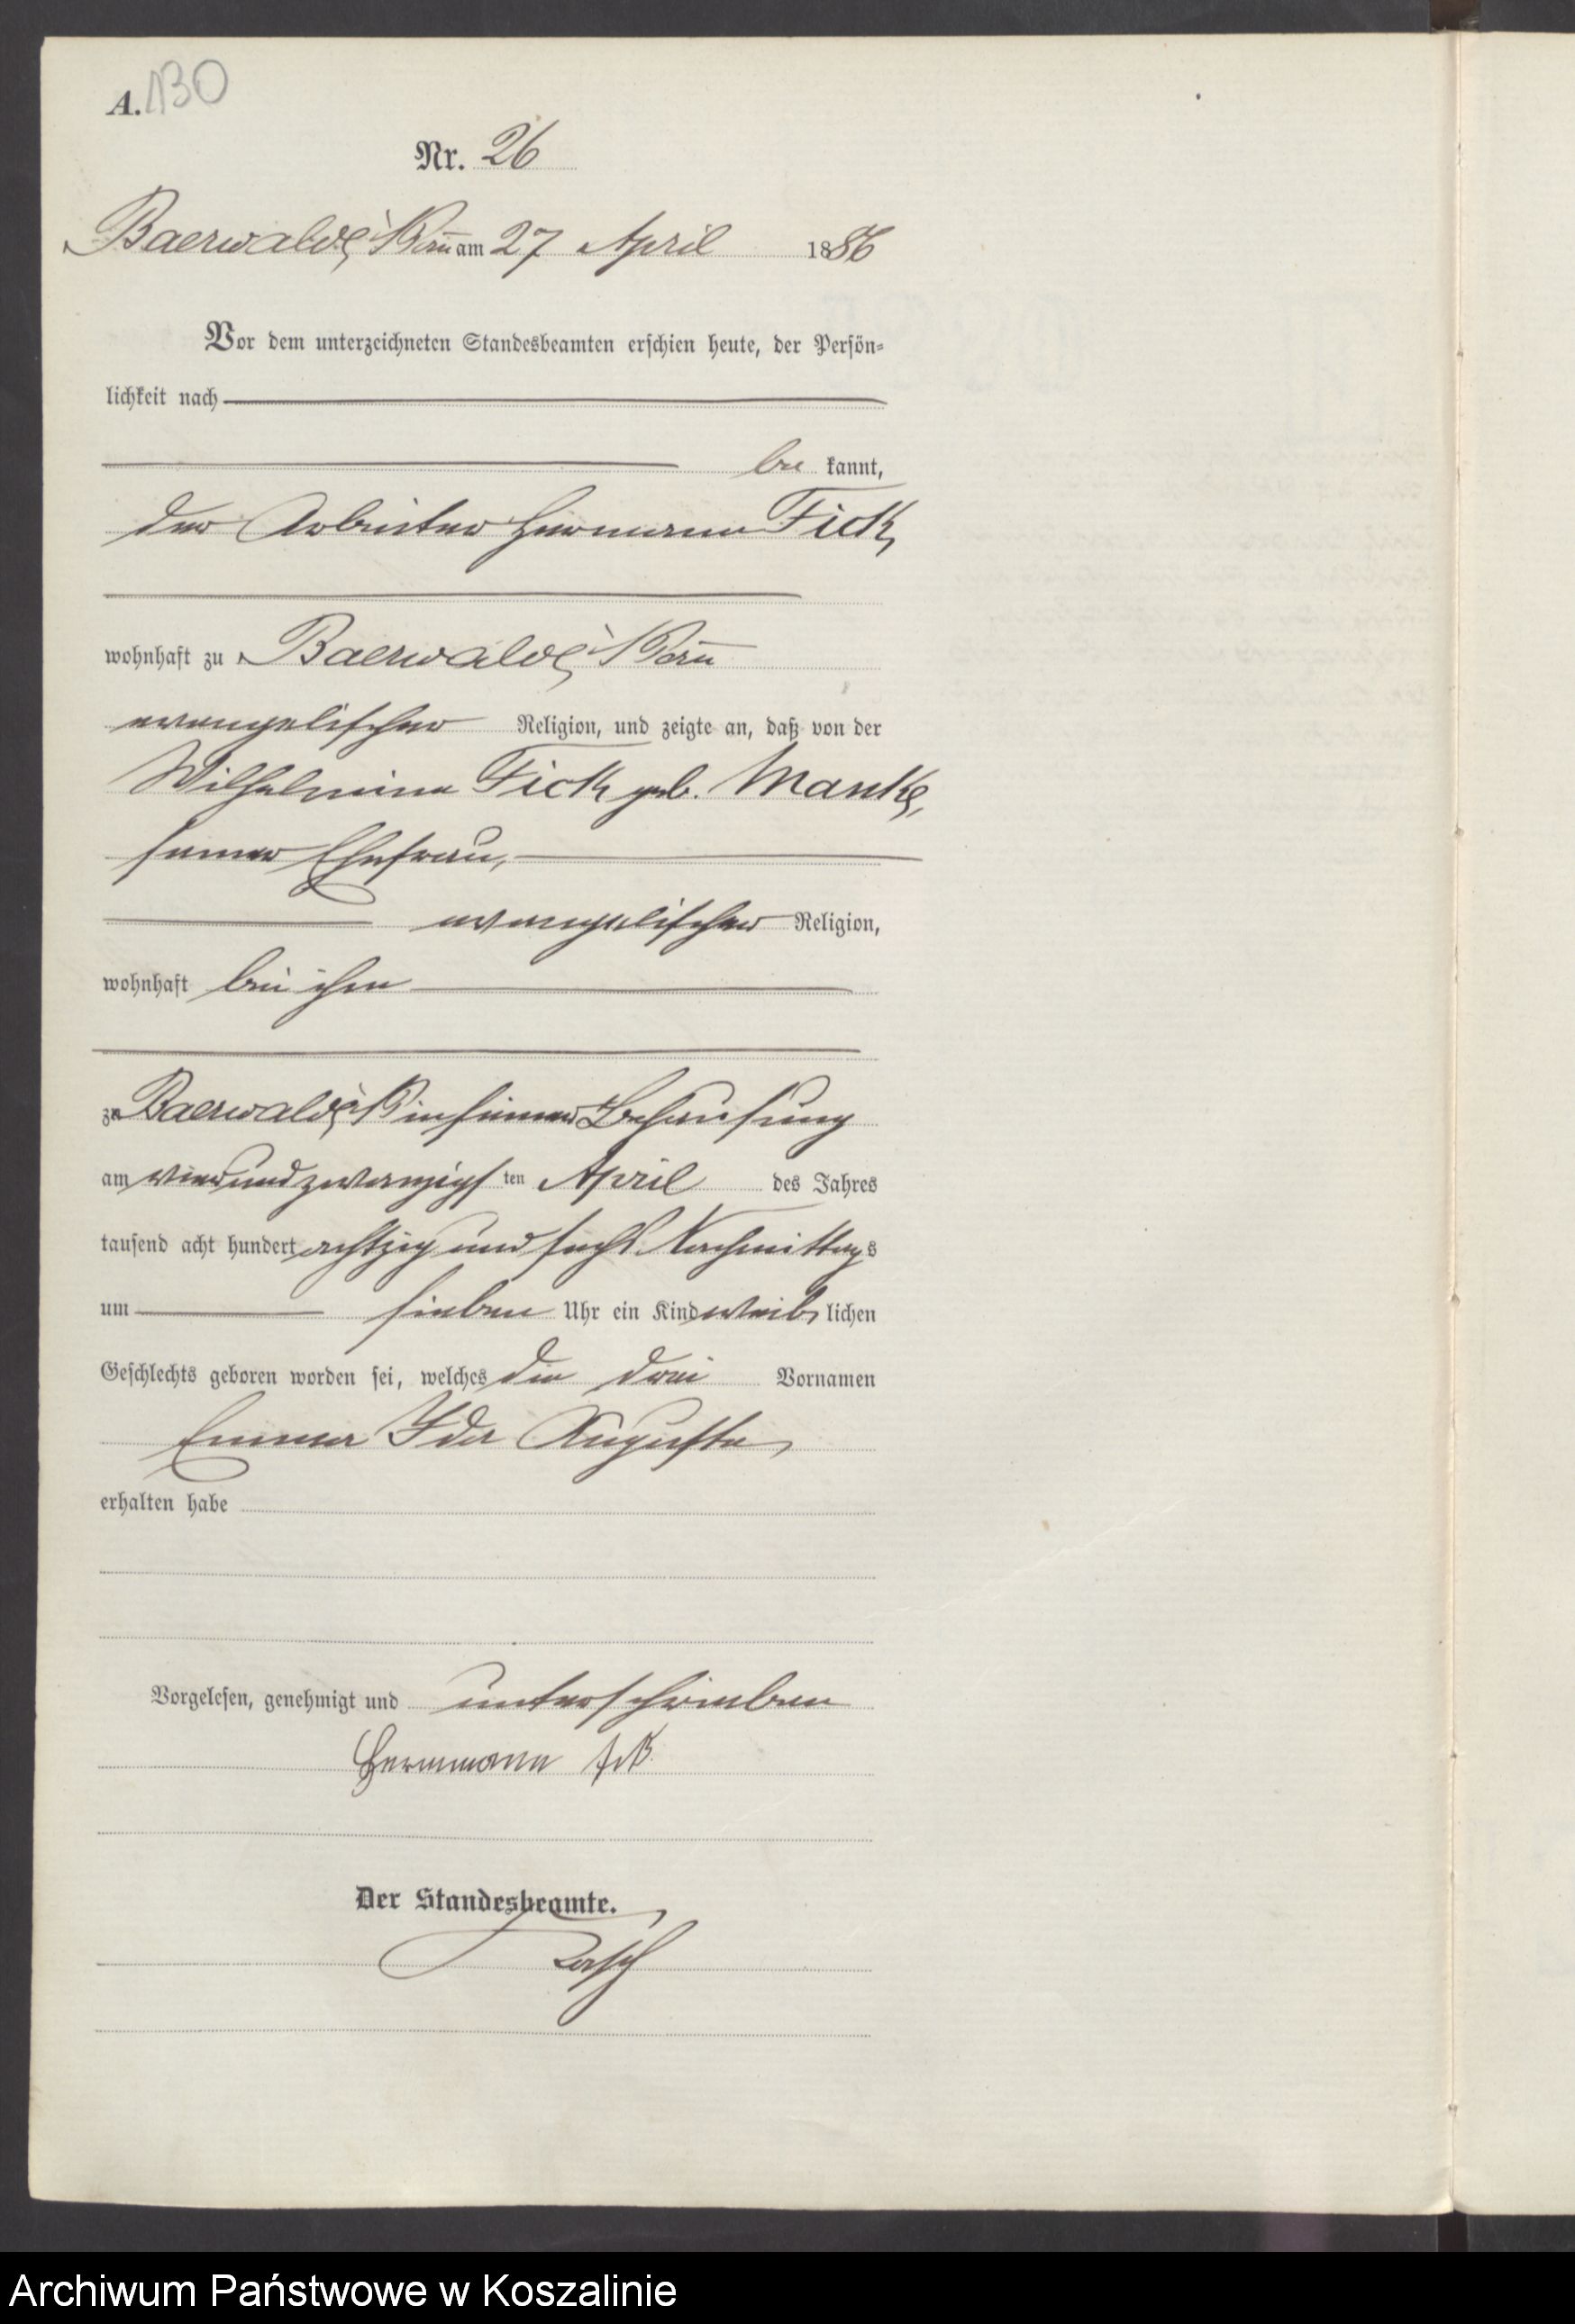 A. 130
Nr. 26
Baerwalde, Pom̄ am 27 April 1886
Vor dem unterzeichneten Standesbeamten erschien heute, der Persön-
lichkeit nach
be kannt,
der Arbeiter Hermann Fick,
wohnhaft zu Baerwalde, Pom̄
evangelischer Religion, und zeigte an, daß von der
Wilhelmine Fick geb. Manke,
seiner Ehefrau,
evangelischer Religion,
wohnhaft bei ihm
zu Baerwalde, P in seiner Behausung
am vierundzwanzigs ten April des Jahres
tausend acht hundert achtzig und sechs Nachmittags
um sieben Uhr ein Kind weib lichen
Geschlechts geboren worden sei, welches die drei Vornamen
Emma Ida Auguste,
erhalten habe
Vorgelesen, genehmigt und unterschrieben
Hermmann Fick
Der Standesbeamte.
Archiwum Państwowe w Koszalinie